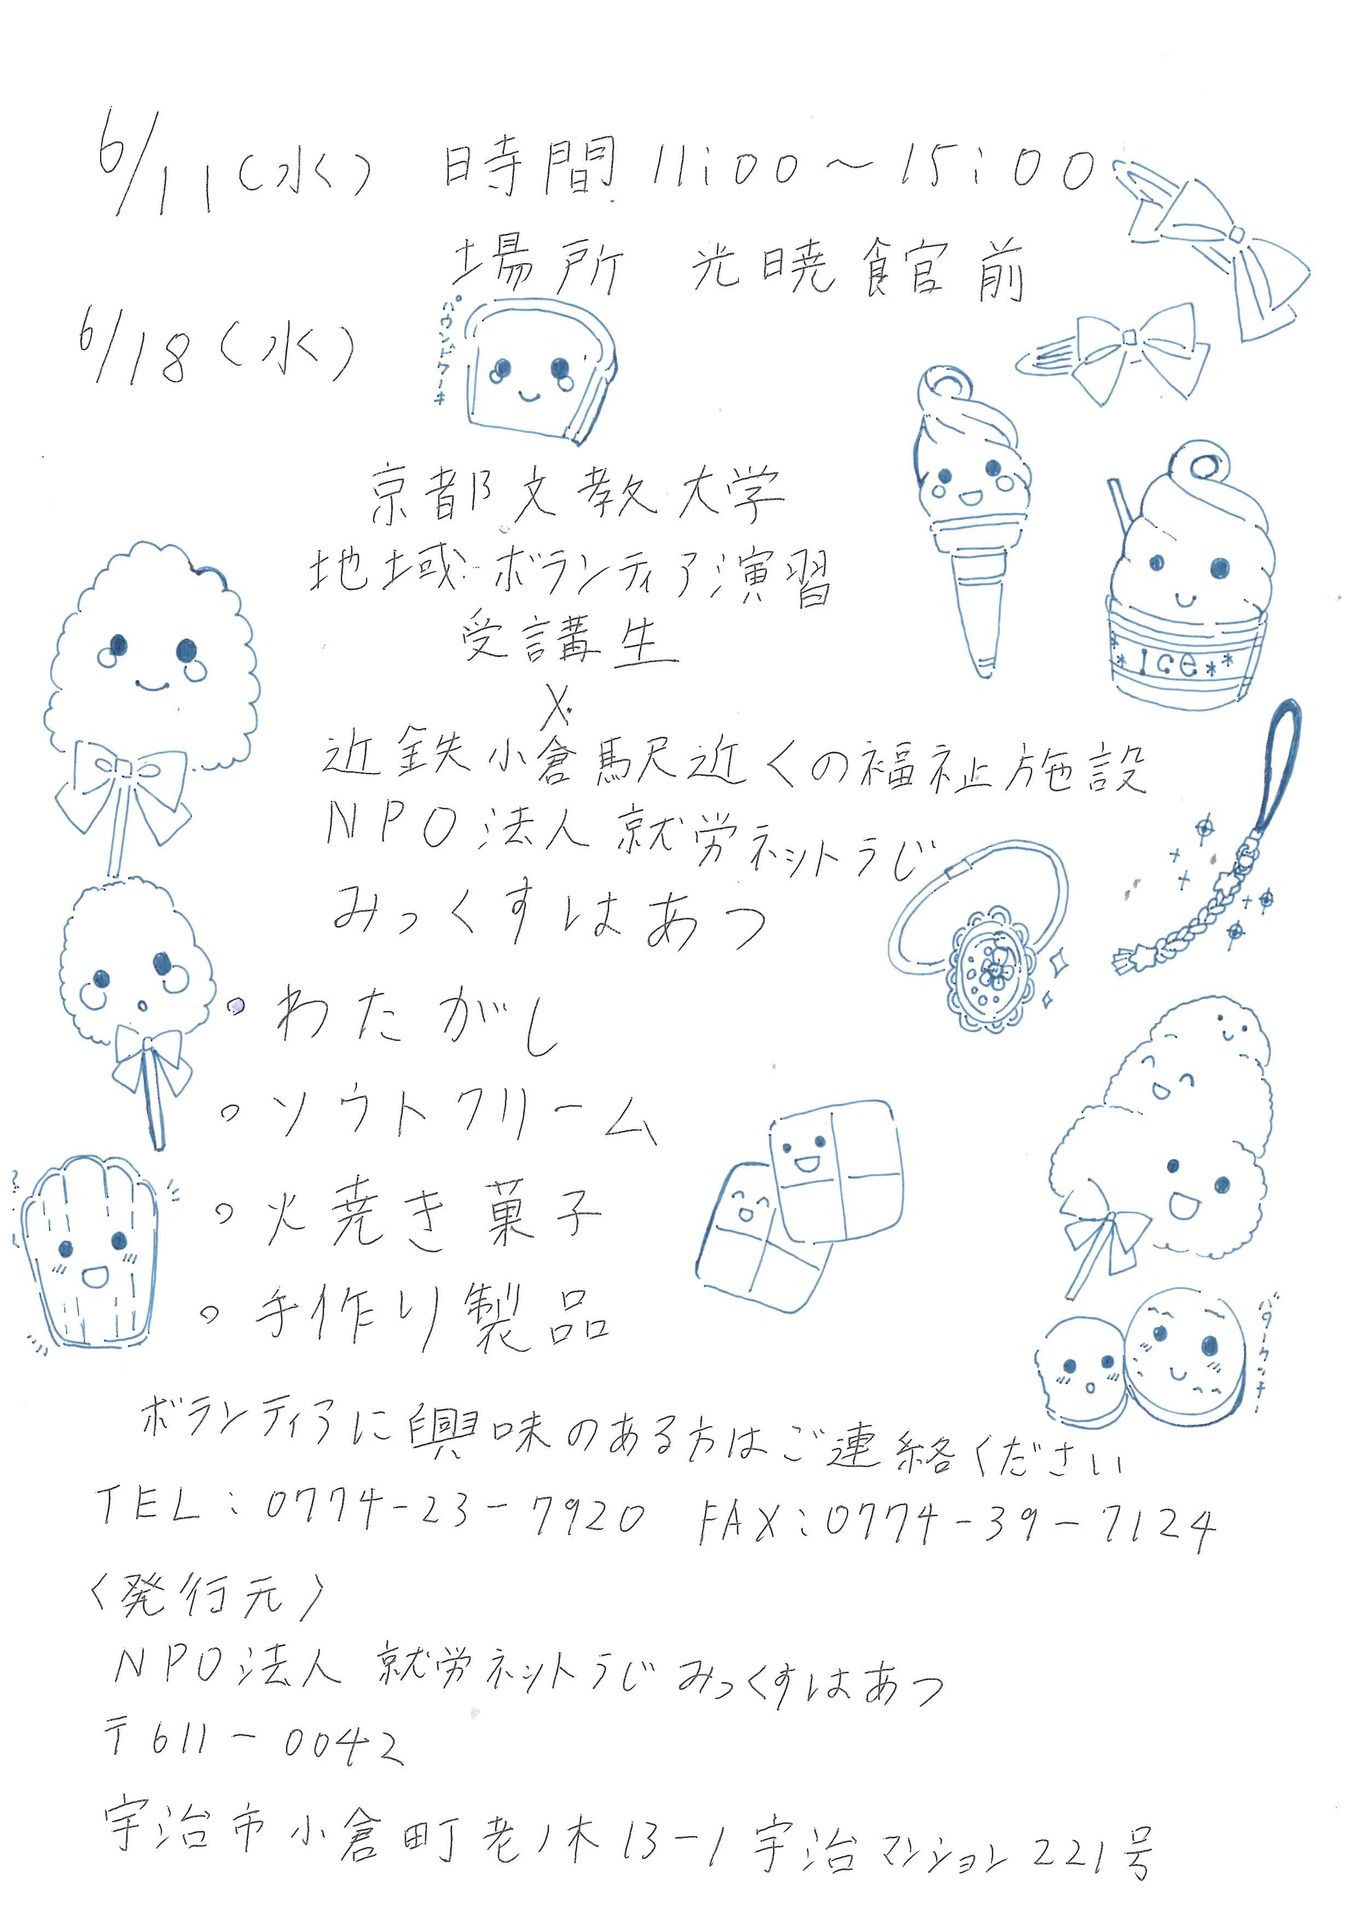 6/11(水) 時間 11:00~15:00
場所 光暁館前
6/18(水)
パウンドケーキ
京都文教大学
地域ボランティア演習
受講生
×
近鉄小倉駅近くの福祉施設
NPO法人 就労ネットうじ
みっくすはあつ
・わたがし
・ソフトクリーム
・焼き菓子
・手作り製品
*Ice**
バタークッキー
ボランティアに興味のある方はご連絡ください
TEL:0774-23-7920 FAX:0774-39-7124
〈発行元〉
NPO法人 就労ネットうじ みっくすはあつ
〒611-0042
宇治市小倉町老ノ木13-1宇治マンション221号